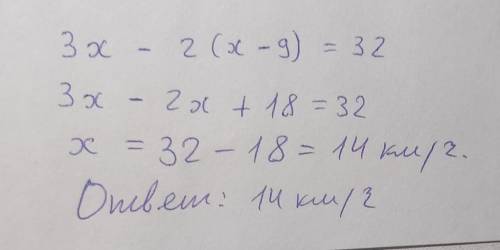 3x - 2(x-9) = 32
3x - 2x + 18 = 32
x = 32 - 18 = 14 км/ч.
Ответ: 14 км/ч